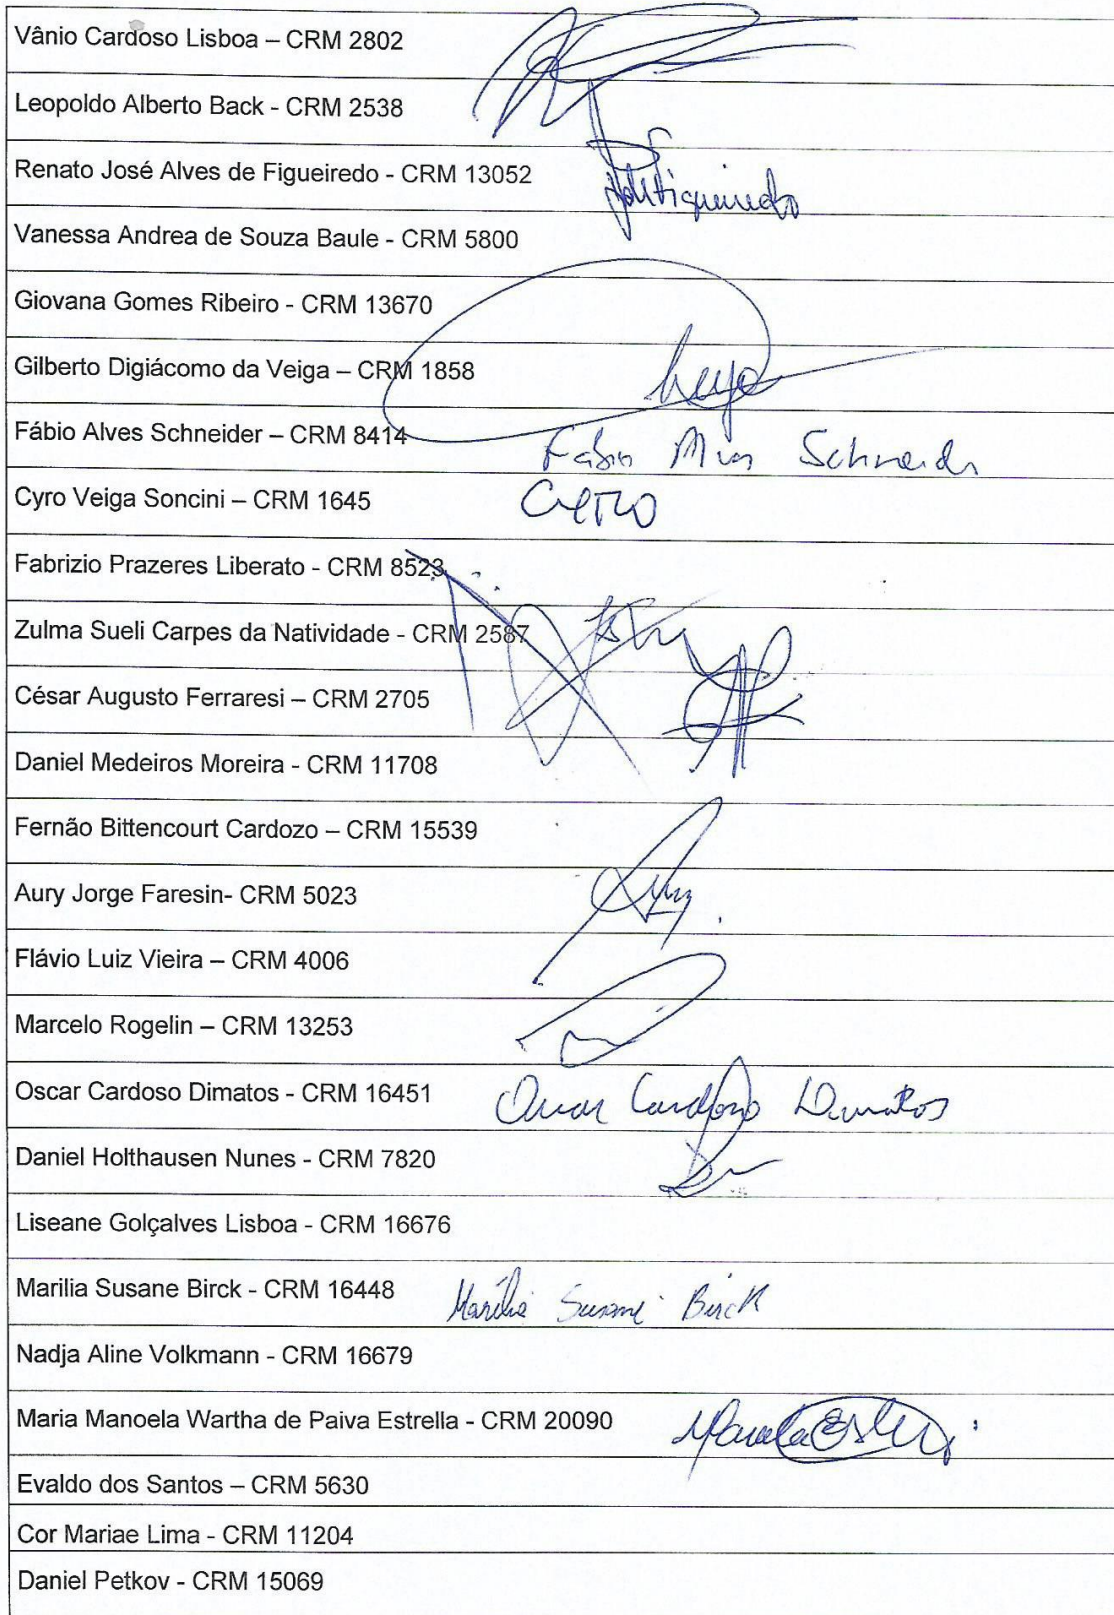 Vânio Cardoso Lisboa – CRM 2802
Leopoldo Alberto Back - CRM 2538
Renato José Alves de Figueiredo - CRM 13052
Vanessa Andrea de Souza Baule - CRM 5800
Giovana Gomes Ribeiro - CRM 13670
Gilberto Digiácomo da Veiga – CRM 1858
Fábio Alves Schneider – CRM 8414 Fabio Schneider
Cyro Veiga Soncini – CRM 1645
Fabrizio Prazeres Liberato - CRM 8523
Zulma Sueli Carpes da Natividade - CRM 2587
César Augusto Ferraresi – CRM 2705
Daniel Medeiros Moreira - CRM 11708
Fernão Bittencourt Cardozo – CRM 15539
Aury Jorge Faresin- CRM 5023
Flávio Luiz Vieira – CRM 4006
Marcelo Rogelin – CRM 13253
Oscar Cardoso Dimatos - CRM 16451 Oscar Cardoso Dimatos
Daniel Holthausen Nunes - CRM 7820
Liseane Golçalves Lisboa - CRM 16676
Marilia Susane Birck - CRM 16448 Marilia Susane Birck
Nadja Aline Volkmann - CRM 16679
Maria Manoela Wartha de Paiva Estrella - CRM 20090
Evaldo dos Santos – CRM 5630
Cor Mariae Lima - CRM 11204
Daniel Petkov - CRM 15069